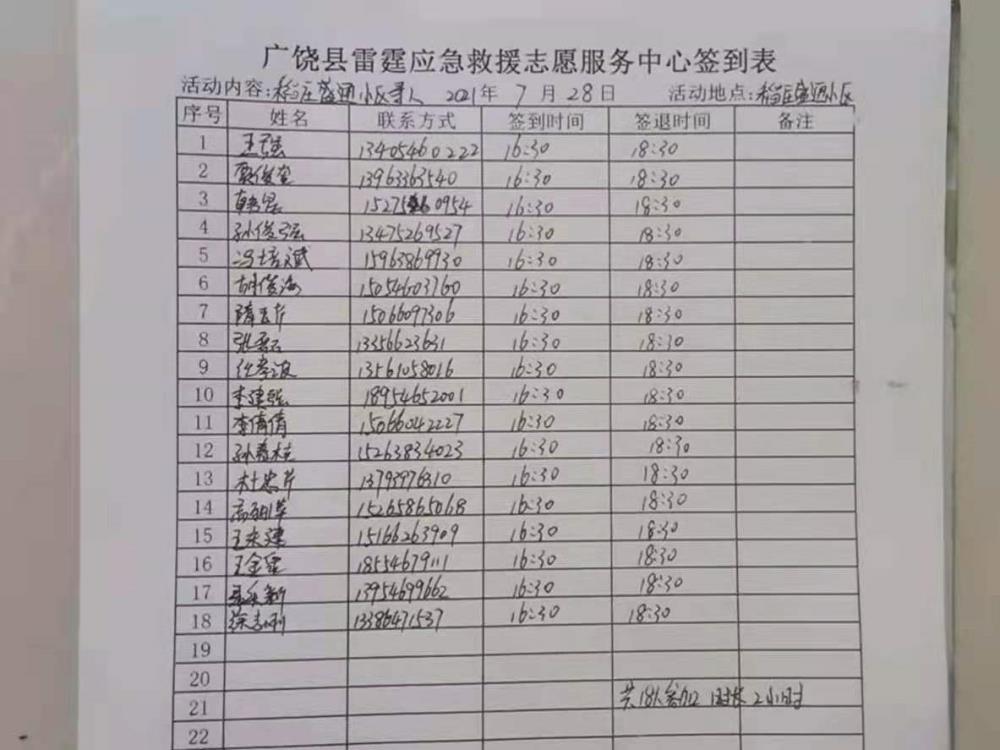 广饶县雷霆应急救援志愿服务中心签到表
活动内容:稻庄盛通小区寻人 2021年 7月28日 活动地点:稻庄盛通小区
序号 姓名 联系方式 签到时间 签退时间 备注
1 王强 13405460222 16:30 18:30
2 13963363540 16:30 18:30
3 韩昱 15275460954 16:30 18:30
4 孙俊强 13475269527 16:30 18:30
5 冯培斌 15963869930 16:30 18:30
6 胡俊海 15054603760 16:30 18:30
7 隋玉芹 15066097306 16:30 18:30
8 张磊 13356623631 16:30 18:30
9 任孝波 13561058016 16:30 18:30
10 李建强 18954652001 16:30 18:30
11 李倩倩 15066042227 16:30 18:30
12 孙春桂 15263834023 16:30 18:30
13 杜忠芹 13793976310 16:30 18:30
14 高丽萍 15265865068 16:30 18:30
15 王来建 15166263909 16:30 18:30
16 王金星 18554679111 16:30 18:30
17 13954699662 16:30 18:30
18 徐志刚 13386471537 16:30 18:30
19
20
21 共18人参加 时长2小时
22